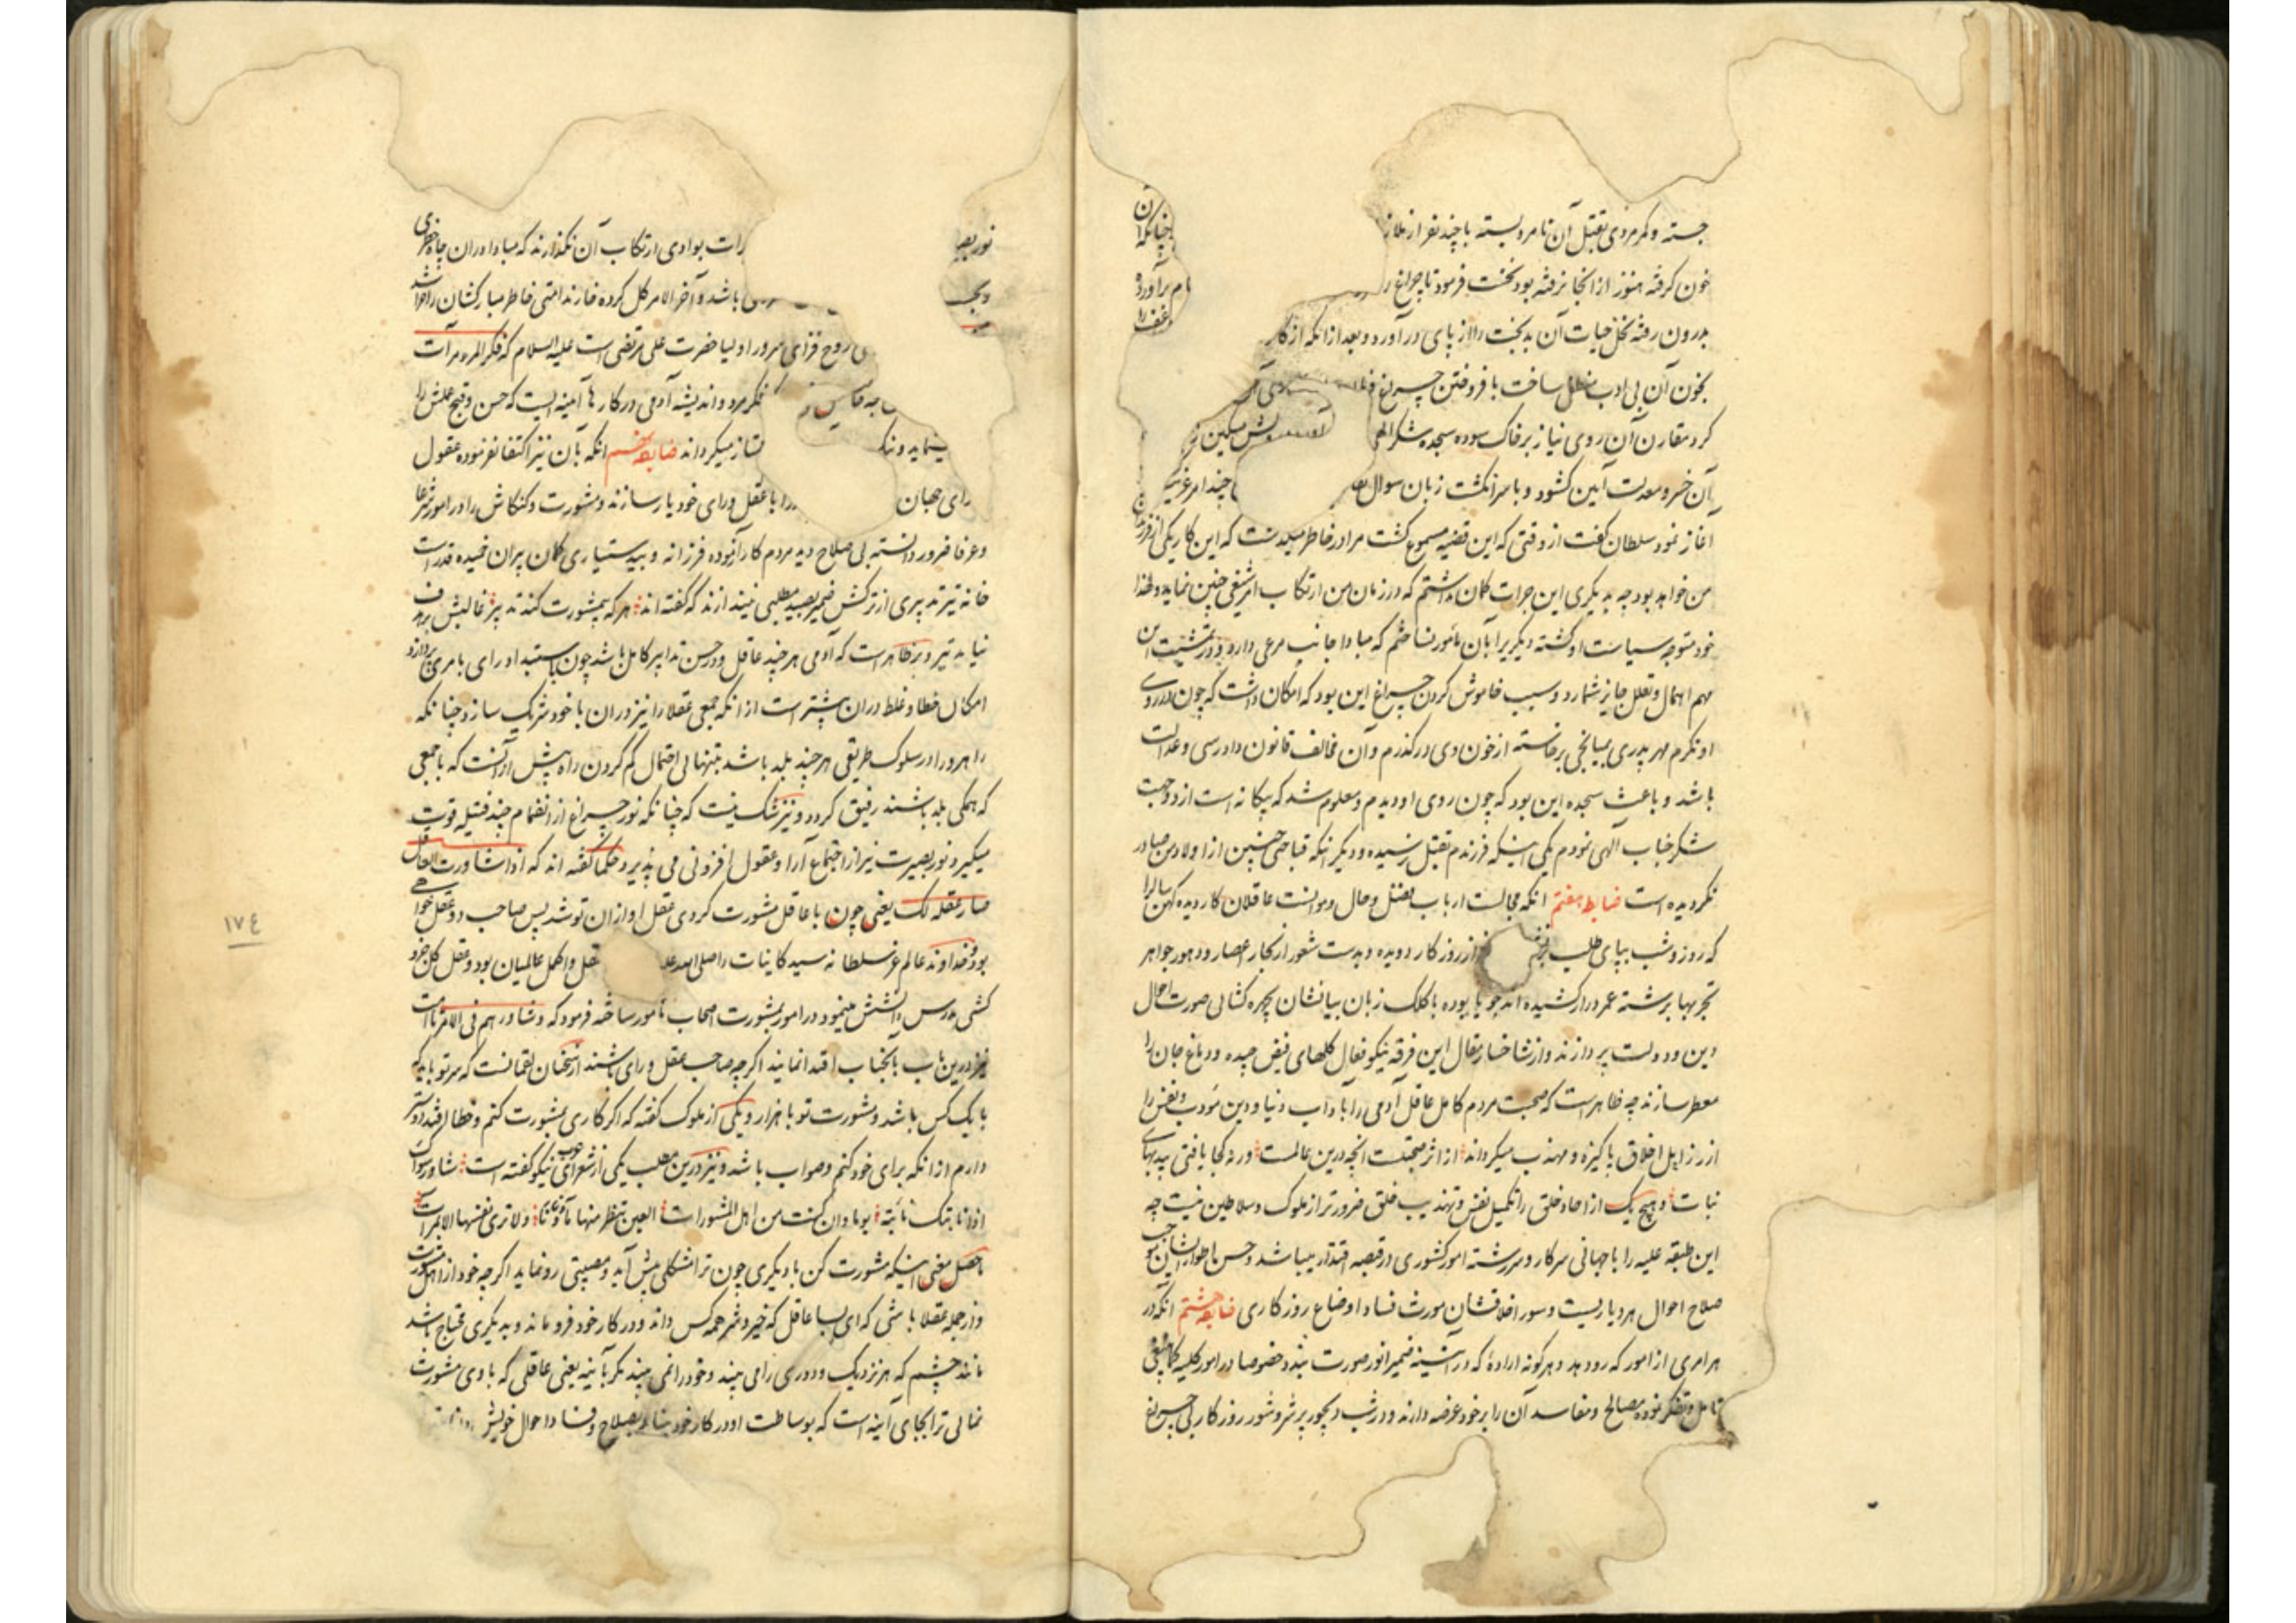 جسته و کمر مردی بقتل آن نامرد بسته با چند نفر از ملاز آن
خون گرفته هنوز از آنجا نرفته بود نخست فرمود تا چراغ را چنانکه
بدرون رفته نخل حیات آن بدبخت را از پای درآورد و بعد از آنکه از کار ام برآورده
بخون آن بی ادب منطفی ساخت بافروختن چراغ
کرد مقارن آن روی نیاز بر خاک سوده سجده شکر الهی
آن خسرو معدلت آیین گشود و با سرانگشت زبان سوال چند امر غریب
آغاز نمود سلطان گفت از وقتی که این قضیه مسموع گشت مرا در خاطر میگذشت که این کار یکی از فرزندان
من خواهد بود چه بدیگری این جرات گمان نداشتم که در زمان من ارتکاب امر شنیع چنین نماید و لهذا
خود متوجه سیاست او گشته دیگریرا بآن مامور نساختم که مبادا جانب مرعی دارد و در تمشیت این
مهم اهمال و تعلل جایز شمارد و سبب خاموش کردن چراغ این بود که امکان داشت که چون در روی
او نگرم مهر پدری بمیانجی برخاسته از خون وی درگذرم و آن مخالف قانون دادرسی و عدالت
باشد و باعث سجده این بود که چون روی او دیدم و معلوم شد که بیگانه است از دو جهت
شکر جناب الهی نمودم یکی اینکه فرزندم بقتل نرسیده و دیگر آنکه قباحتی چنین از اولاد من صادر
نگردیده است ضابطه هفتم آنکه مجالست ارباب فضل و حال و موانست عاقلان کار دیده کهن سال را
که روز و شب بپای طلب از روزگار دویده و بدست شعور از بحار اعصار و دهور جواهر
تجربها برشته عمر دراز کشیده اند جویا بوده با کلک زبان بیانشان چهره گشائی صورت احوال
دین و دولت پردازند و از شاخسار مقال این فرقه نیکو فعال گلهای فیض چیده دماغ جان را
معطر سازند چه ظاهر است که صحبت مردم کامل عاقل آدمی را بآداب دنیا و دین مؤدب و نفس را
از رذایل اخلاق پاکیزه و مهذب میگرداند از اثر صحبتست آنچه درین عالمست ورنه کجا یافتی بید بهای
نبات و هیچ یک از آحاد خلق را تکمیل نفس و تهذیب خلق ضرورتر از ملوک و سلاطین نیست چه
این طبقه علیه را با جهانی سرکار و سررشته امور کشوری در قبضه اقتدار میباشد و حسن اطوار ایشان موجب
صلاح احوال هر دیاریست و سوء اخلاقشان مورث فساد اوضاع روزگاری ضابطه هشتم آنکه در
هر امری از امور که رو دهد و هر گونه اراده که در آئینه ضمیر انور صورت بندد خصوصا در امور کلیه کما ینبغی
تامل و تفکر نموده مصالح و مفاسد آن را بر خود عرضه دارند و در شب دیجور پر شر و شور روزگار بی چراغ
نور بصیرت بوادی ارتکاب آن نگذارند که مبادا در آن چاه خطری
باشد و آخر الامر گل کرده خار ندامتی خاطر مبارکشان را خراشد
روح فزای سرور اولیا حضرت علی مرتضی است علیه السلام که فکر المرء مرآت
فکر مرد و اندیشه آدمی در کارها آئینه ایست که حسن و قبح عملش را
مینماید و نیک ممتاز میگرداند ضابطه نهم آنکه بآن نیز اکتفا نفرموده عقول
رای جهان را با عقل و رای خود یار سازند و مشورت و کنکاش را در امور شرعا
و عرفا ضرور دانسته بی صلاح دید مردم کار آزموده فرزانه و بی دستیاری کمان پیران خمیده قد راست
خانه تیر تدبیری از ترکش ضمیر بصید مطلبی نیندازند که گفته اند هر که بمشورت کند تدبیر غالبش بر هدف
نیاید تیر و نیز ظاهر است که آدمی هر چند عاقل و در حسن تدابیر کامل باشد چون باستبداد رای بامری پردازد
امکان خطا و غلط در آن بیشتر است از آنکه جمعی عقلا را نیز در آن با خود شریک سازد چنانکه
راهرو را در سلوک طریقی هر چند بلد باشد بتنهائی احتمال گم کردن راه بیش از آنست که با جمعی
که همگی بلد باشند رفیق گردد و نیز شک نیست که چنانکه نور چراغ از انضمام چند فتیله قوت
میگیرد نور بصیرت نیز از اجتماع آرا و عقول افزونی می پذیرد حکما گفته اند که اذا شاورت العاقل
صار عقله لک یعنی چون با عاقل مشورت کردی عقل او از آن تو شد پس صاحب دو عقل خواهی
بود و خداوند عالم عز سلطانه سید کاینات را صلی الله علیه که عقل و اکمل عالمیان بود و عقل کل جزو
کشی مدرس دانشش مینمود در امور بمشورت اصحاب مامور ساخته فرمود که و شاورهم فی الامر تا امت
نیز درین باب بآنجناب اقتدا نمایند اگر چه صاحب عقل و رای باشند از سخنان لقمانست که سر تو باید که
با یک کس باشد و مشورت تو با هزار و یکی از ملوک گفته که اگر کاری بمشورت کنم و خطا افتد دوستر
دارم از آنکه برای خود کنم و صواب باشد و نیز درین مطلب یکی از شعرای عرب نیکو گفته است شاور سواک
اذا نابتک نائبة یوما وان کنت من اهل المشورات العین تنظر منها ما دنا و نآی ولا تری نفسها الا بمرآت
حاصل معنی اینکه مشورت کن با دیگری چون ترا مشکلی پیش آید و مصیبتی رو نماید اگر چه خود از اهل مشورت
و از جمله عقلا باشی که ای بسا عاقل که خیر و شر همه کس داند و در کار خود فرو ماند و بدیگری محتاج باشد
مانند چشم که هر نزدیک و دوری را می بیند و خود را نمی بیند مگر بآینه یعنی عاقلی که با وی مشورت
نمائی ترا بجای آینه است که بوساطت او در کار خود بینا و بصلاح و فساد احوال خویش
١٧٤